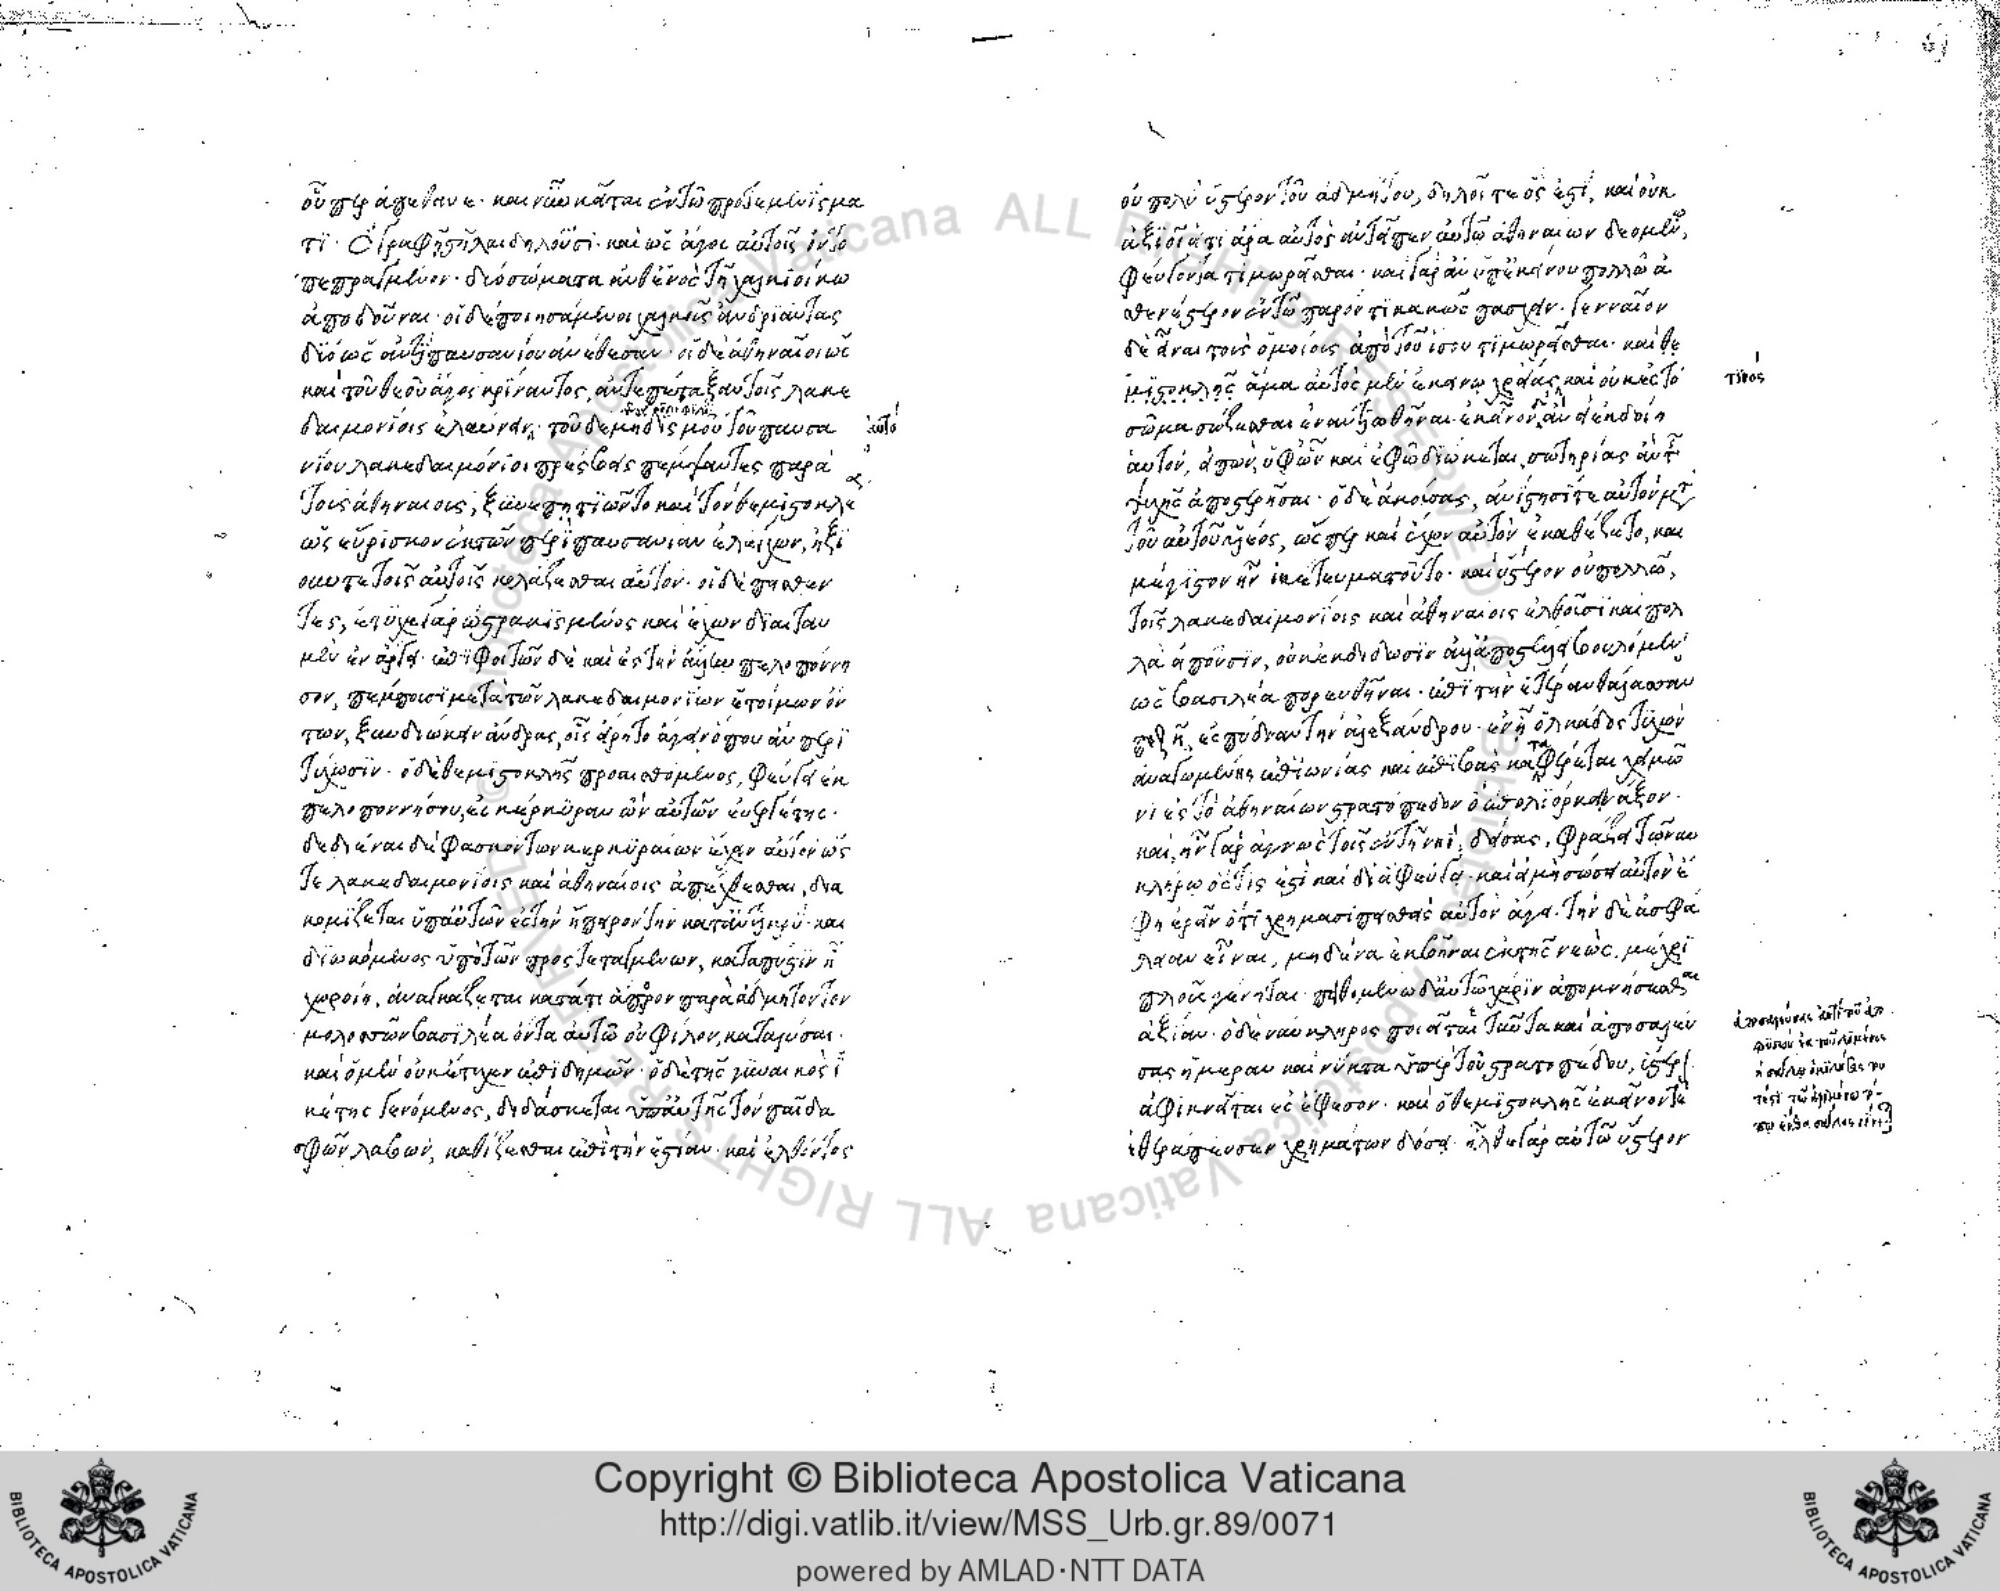 οὗπερ ἀπέθανε· καὶ νῦν κεῖται ἐν τῷ προτεμενίσμα
τι· ὃ γραφῇ στῆλαι δηλοῦσι· καὶ ὡς ἄγος αὐτοῖς ὂν τὸ
πεπραγμένον· δύο σώματα ἀνθ' ἑνὸς τῇ χαλκιοίκω
ἀποδοῦναι· οἱ δὲ ποιησάμενοι χαλκοῦς ἀνδριάντας
δύο ὡς ἀντὶ παυσανίου ἀνέθεσαν· οἱ δὲ ἀθηναῖοι ὡς
καὶ τοῦ θεοῦ ἄγος κρίναντος, ἀντεπέταξαν τοῖς λακε
δαιμονίοις ἐλαύνειν· τοῦ δὲ μηδισμοῦ τοῦ παυσα
νίου λακεδαιμόνιοι πρέσβεις πέμψαντες παρὰ
τοὺς ἀθηναίους, ξυνεπῃτιῶντο καὶ τὸν θεμιστοκλέα
ὡς εὕρισκον ἐκ τῶν περὶ παυσανίαν ἐλέγχων, ἠξί
ουν τε τοῖς αὐτοῖς κολάζεσθαι αὐτόν· οἱ δὲ πεισθέν
τες, ἔτυχε γὰρ ὠστρακισμένος καὶ ἔχων δίαιταν
μὲν ἐν ἄργει· ἐπιφοιτῶν δὲ καὶ ἐς τὴν ἄλλην πελοπόννη
σον, πέμπουσι μετὰ τῶν λακεδαιμονίων ἑτοίμων ὄν
των, ξυνδιώκειν ἄνδρας, οἷς εἴρητο ἄγειν ὅπου ἂν περι
τύχωσιν· ὁ δὲ θεμιστοκλῆς προαισθόμενος, φεύγει ἐκ
πελοποννήσου, ἐς κέρκυραν ὢν αὐτῶν εὐεργέτης·
δεδιέναι δὲ φασκόντων κερκυραίων ἔχειν αὐτὸν ὥς
τε λακεδαιμονίοις καὶ ἀθηναίοις ἀπεχθέσθαι, δια
κομίζεται ὑπ' αὐτῶν ἐς τὴν ἤπειρον τὴν καταντικρύ· καὶ
διωκόμενος ὑπὸ τῶν προστεταγμένων, κατὰ πύστιν ᾗ
χωροίη, ἀναγκάζεται κατά τι ἄπορον παρὰ ἄδμητον τὸν
μολοσσῶν βασιλέα ὄντα αὐτῷ οὐ φίλον, καταλῦσαι·
καὶ ὁ μὲν οὐκ ἔτυχεν ἐπιδημῶν· ὁ δὲ τῆς γυναικὸς ἱ
κέτης γενόμενος, διδάσκεται ὑπ' αὐτῆς τὸν παῖδα
σφῶν λαβών, καθίζεσθαι ἐπὶ τὴν ἑστίαν· καὶ ἐλθόντος
οὐ πολὺ ὕστερον τοῦ ἀδμήτου, δηλοῖ τε ὅς ἐστι, καὶ οὐκ
ἀξιοῖ εἴ τι ἄρα αὐτὸς ἀντεῖπεν αὐτῷ ἀθηναίων δεομένῳ,
φεύγοντα τιμωρεῖσθαι· καὶ γὰρ ἂν ὑπ' ἐκείνου πολλῷ ἀ
σθενέστερον ἐν τῷ παρόντι κακῶς πάσχειν· γενναῖον
δὲ εἶναι τοὺς ὁμοίους ἀπὸ τοῦ ἴσου τιμωρεῖσθαι· καὶ θε
μιστοκλῆς ἅμα αὐτὸς μὲν ἐκείνῳ χρείας καὶ οὐκ ἐς τὸ
σῶμα σώζεσθαι ἐναντιωθῆναι· ἐκεῖνον δ' ἂν εἰ ἐκδοίη
αὐτόν, εἰπών, ὑφ' ὧν καὶ ἐφ' ᾧ διώκεται, σωτηρίας ἂν τῆς
ψυχῆς ἀποστερῆσαι· ὁ δὲ ἀκούσας, ἀνίστησί τε αὐτὸν μετὰ
τοῦ αὑτοῦ υἱέος, ὥσπερ καὶ ἔχων αὐτὸν ἐκαθέζετο, καὶ
μέγιστον ἦν ἱκέτευμα τοῦτο· καὶ ὕστερον οὐ πολλῷ,
τοῖς λακεδαιμονίοις καὶ ἀθηναίοις ἐλθοῦσι καὶ πολ
λὰ εἰποῦσιν, οὐκ ἐκδίδωσιν ἀλλ' ἀποστέλλει βουλόμενον
ὡς βασιλέα πορευθῆναι· ἐπὶ τὴν ἑτέραν θάλασσαν
πεζῇ, ἐς πύδναν τὴν ἀλεξάνδρου· ἐν ᾗ ὁλκάδος τυχὼν
ἀναγομένης ἐπ' ἰωνίας καὶ ἐπιβὰς καταφέρεται χειμῶ
νι ἐς τὸ ἀθηναίων στρατόπεδον ὃ ἐπολιόρκει νάξον·
καὶ, ἦν γὰρ ἀγνὼς τοῖς ἐν τῇ νηΐ, δείσας, φράζει τῷ ναυ
κλήρῳ ὅστις ἐστὶ καὶ δι' ἃ φεύγει· καὶ εἰ μὴ σώσει αὐτὸν ἔ
φη ἐρεῖν ὅτι χρήμασι πεισθεὶς αὐτὸν ἄγει· τὴν δὲ ἀσφά
λειαν εἶναι, μηδένα ἐκβῆναι ἐκ τῆς νεὼς, μέχρι
πλοῦς γένηται· πειθομένῳ δ' αὐτῷ χάριν ἀπομνήσεσθαι
ἀξίαν· ὁ δὲ ναύκληρος ποιεῖ τε ταῦτα καὶ ἀποσαλεύ
σας ἡμέραν καὶ νύκτα ὑπὲρ τοῦ στρατοπέδου, ὕστερον
ἀφικνεῖται ἐς ἔφεσον· καὶ ὁ θεμιστοκλῆς ἐκεῖνόν τε
ἐθεράπευσεν χρημάτων δόσει· ἦλθε γὰρ αὐτῷ ὕστερον
Copyright © Biblioteca Apostolica Vaticana
http://digi.vatlib.it/view/MSS_Urb.gr.89/0071
powered by AMLAD·NTT DATA